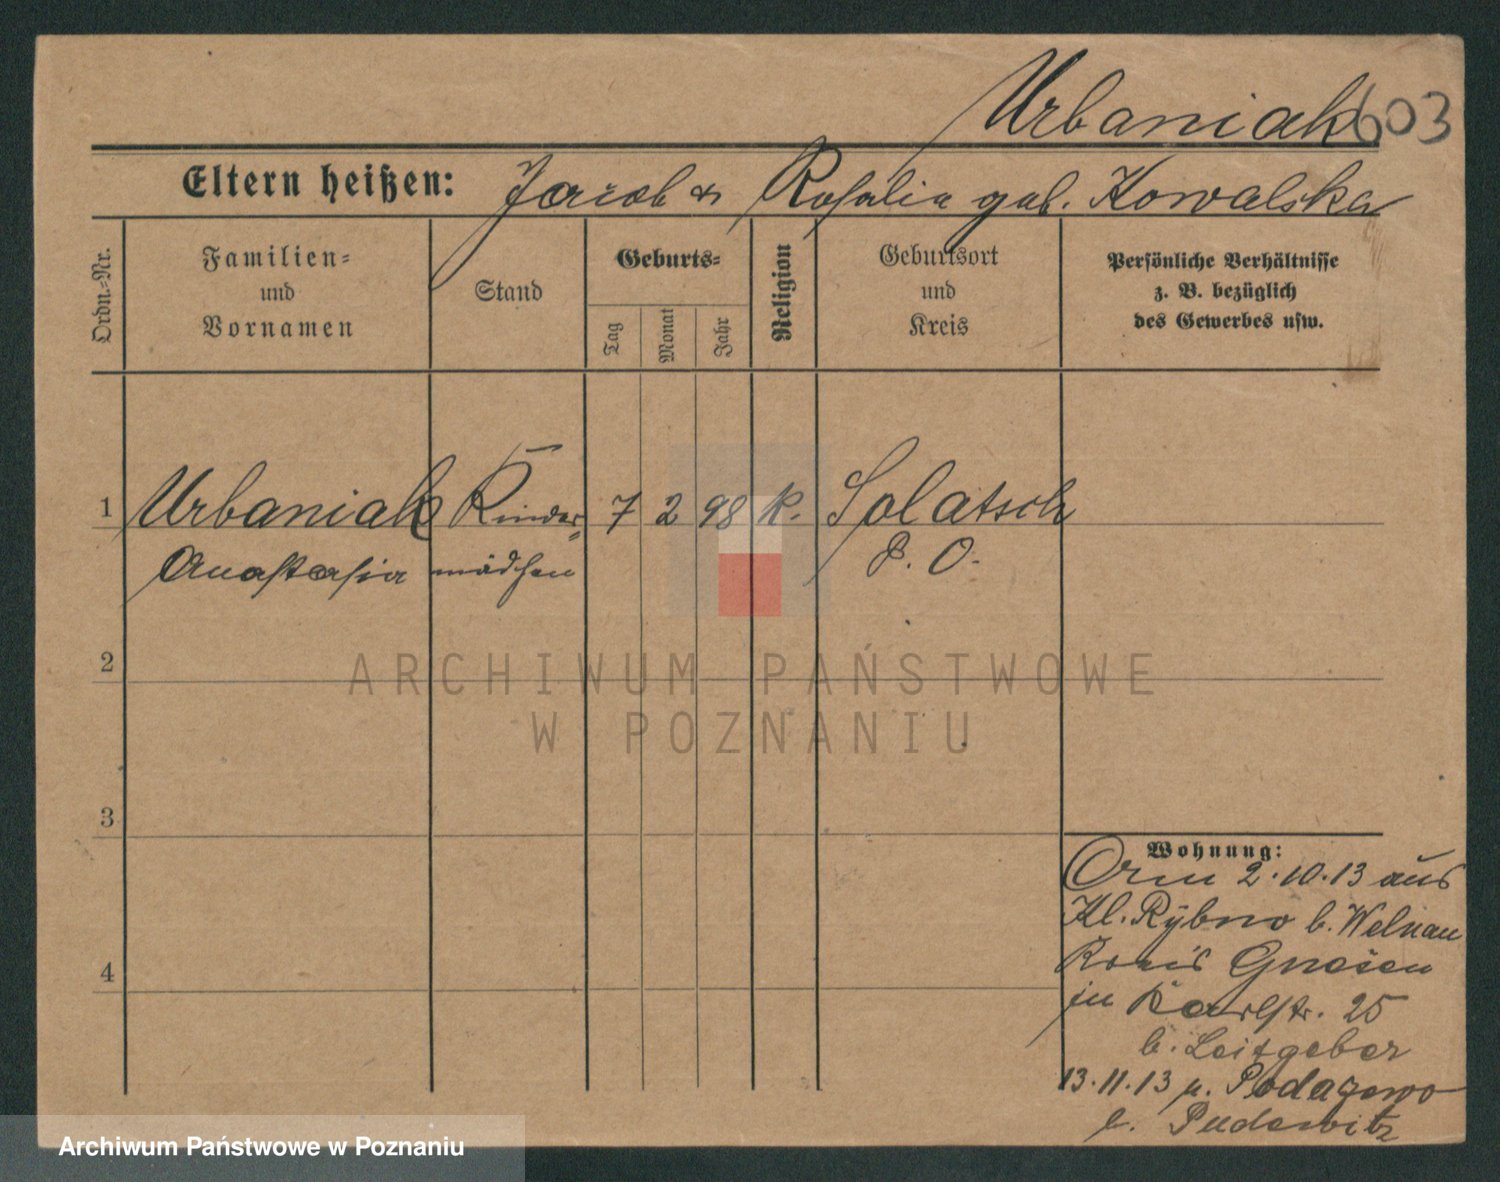 Urbaniak 603
Eltern heißen: Jacob & Rosalia geb. Kowalska
Ordn.-Nr.
Familien-
und
Vornamen
Stand
Geburts-
Tag
Monat
Jahr
Religion
Geburtsort
und
Kreis
Persönliche Verhältnisse
z. B. bezüglich
des Gewerbes usw.
1 Urbaniak Kinder= 7 2 98 k. Solatsch
Anastasia mädchen P. O.
2
3
4
Wohnung:
2.10.13 aus
Kl. Rybno b. Welnau
Kreis Gnesen
in Karlstr. 25
b. Leitgeber
13.11.13 n. Podagewo
b. Pudewitz
ARCHIWUM PAŃSTWOWE
W POZNANIU
Archiwum Państwowe w Poznaniu